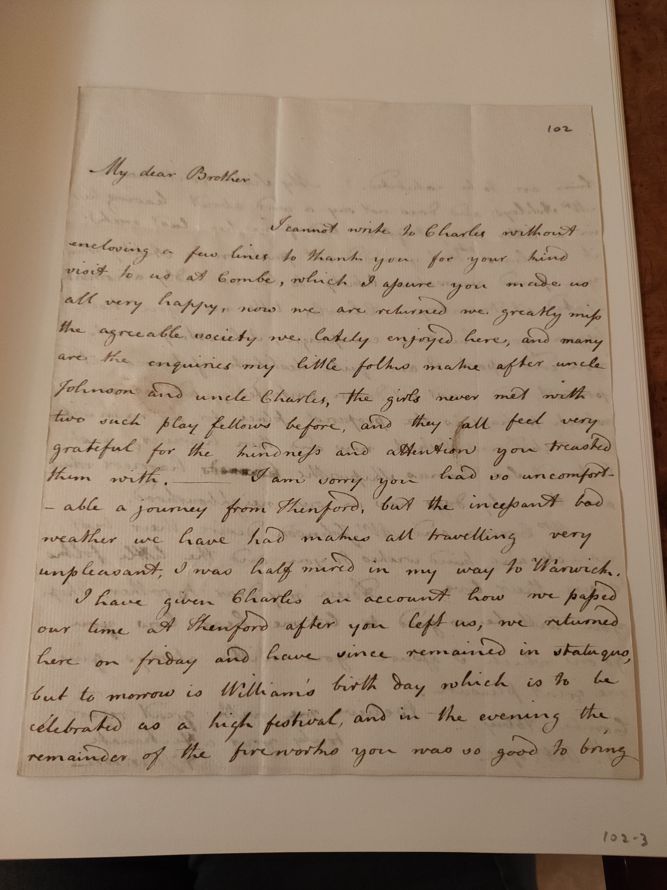 102
My dear Brother
I cannot write to Charles without
encloving a few lines to thank you for your kind
visit to us at Combe, which I aſsure you made us
all very happy, now we are returned we greatly miſs
the agreeable society we lately enjoyed here, and many
are the enquiries my little folks make after uncle
Johnson and uncle Charles, the girls never met with
two such play fellows before, and they all feel very
grateful for the kindneſs and attention you treated
them with. — I am sorry you had so uncomfort-
-able a journey from Thenford, but the inceſsant bad
weather we have had makes all travelling very
unpleasant, I was half mired in my way to Warwick.
I have given Charles an account how we paſsed
our time at Thenford after you left us, we returned
here on friday and have since remained in statuquo,
but to morrow is William's birth day which is to be
celebrated as a high festival, and in the evening the
remainder of the fireworks you was so good to bring
102-3